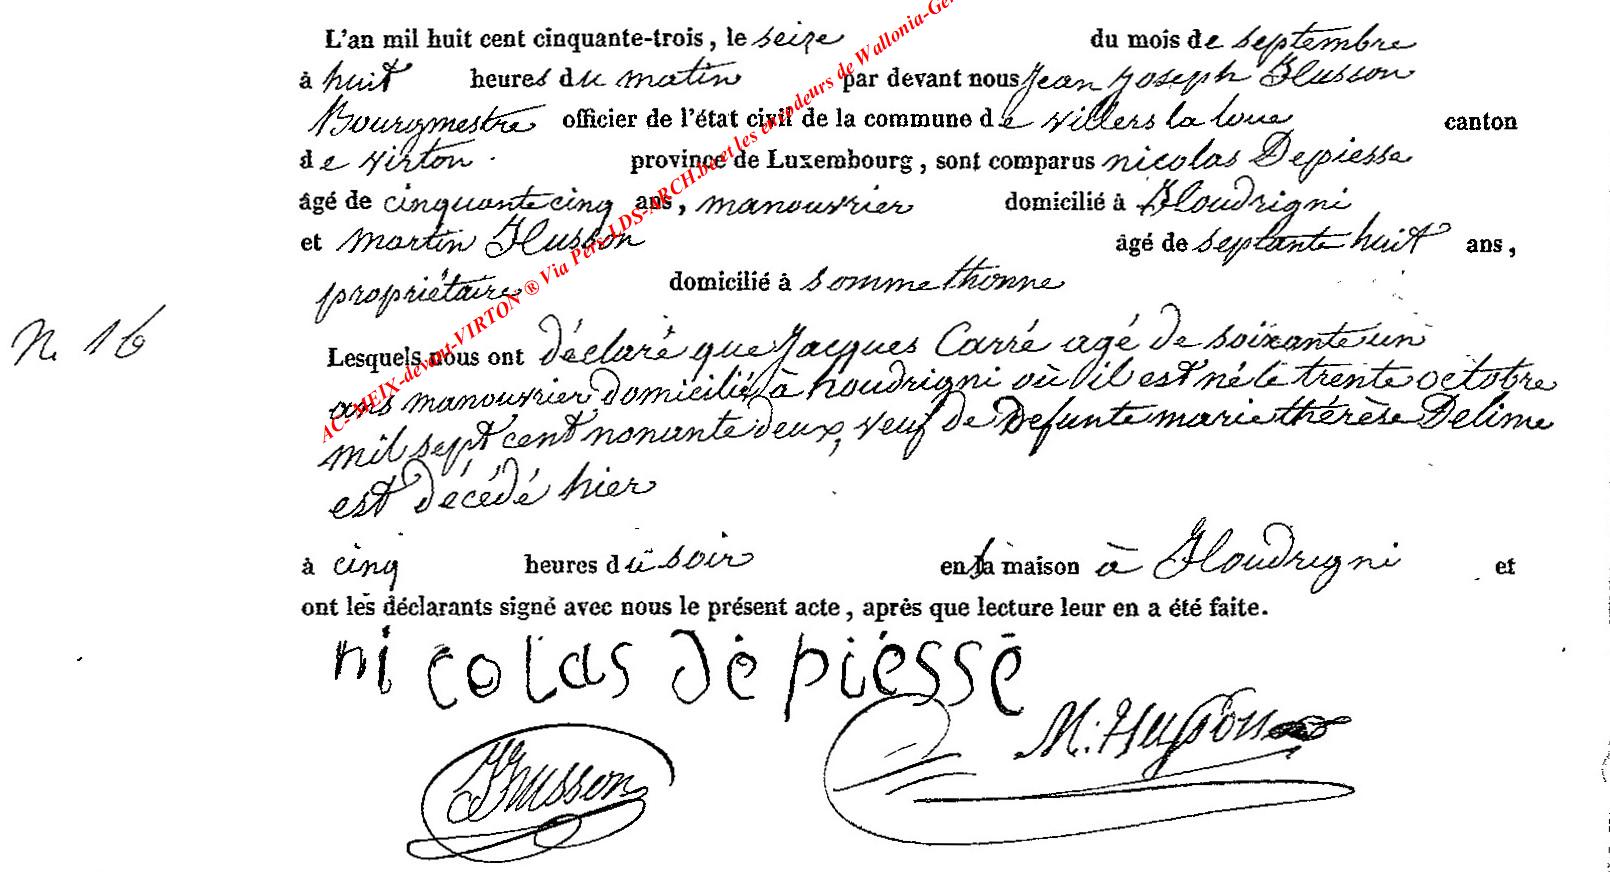 L'an mil huit cent cinquante-trois, le seize du mois de septembre
à huit heures du matin par devant nous Jean Joseph Husson
Bourgmestre officier de l'état civil de la commune de villers la loue canton
de virton . province de Luxembourg, sont comparus nicolas Depiesse
âgé de cinquante cinq ans, manouvrier domicilié à Houdrigni
et martin Husson âgé de septante huit ans,
propriétaire domicilié à sommethonne
N. 16
Lesquels nous ont déclaré que Jacques Carré agé de soixante un
ans manouvrier domicilié à houdrigni où il est né le trente octobre
mil sept cent nonante deux, veuf de Defunte marie thérèse Delime
est décédé hier
à cinq heures du soir en sa maison à Houdrigni et
ont les déclarants signé avec nous le présent acte, après que lecture leur en a été faite.
nicolas dépiésse
M. Husson
JHusson
AC-MEIX-devant-VIRTON ® Via Pers LDS-ARCH.be et les encodeurs de Wallonia-Ge